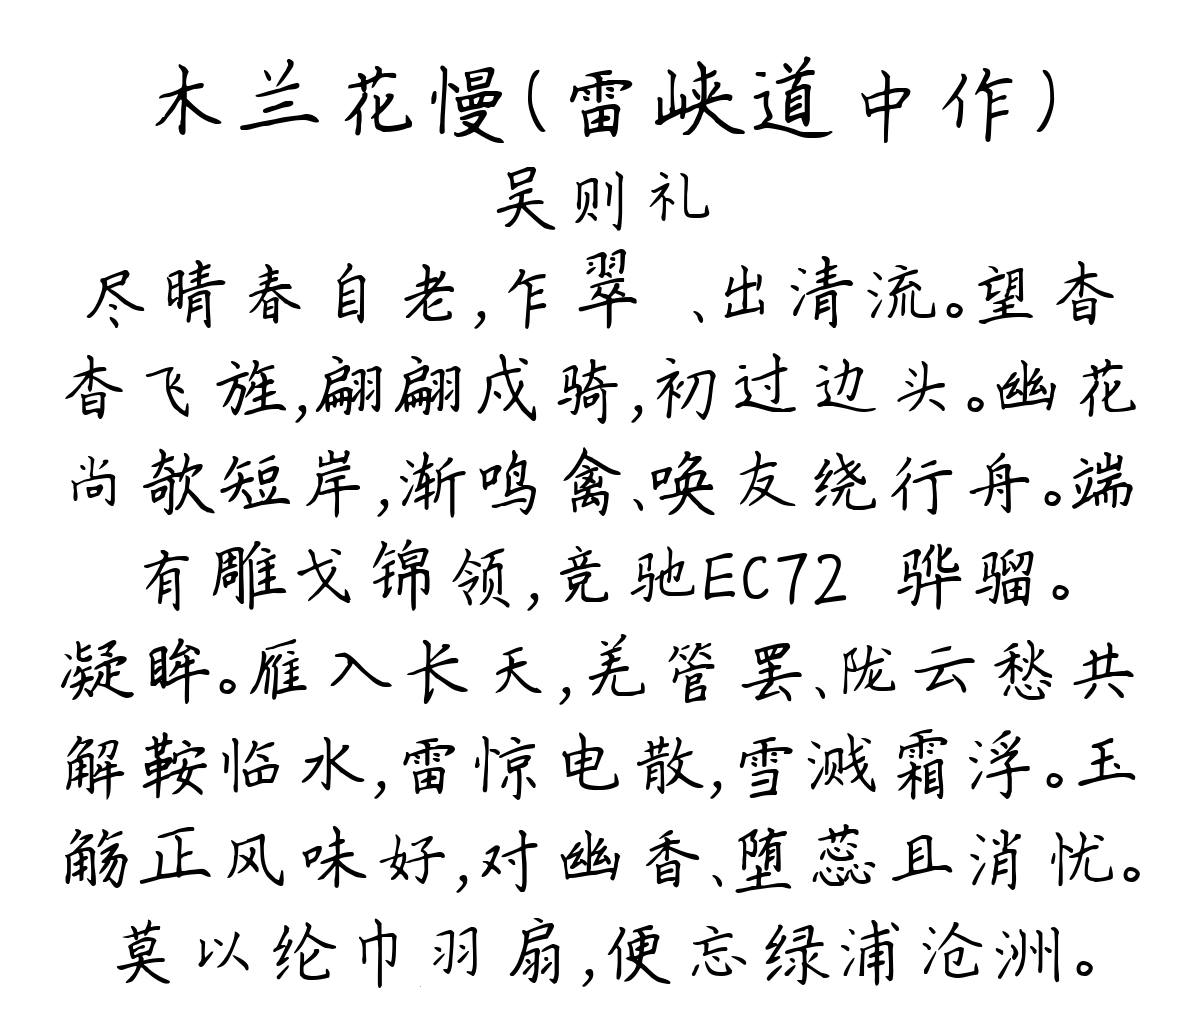 木兰花慢(雷峡道中作)
吴则礼
尽晴春自老,乍翠 、出清流。望杳
杳飞旌,翩翩戍骑,初过边头。幽花
尚欹短岸,渐鸣禽、唤友绕行舟。端
有雕戈锦领,竞驰EC72 骅骝。
凝眸。雁入长天,羌管罢、陇云愁共
解鞍临水,雷惊电散,雪溅霜浮。玉
觞正风味好,对幽香、堕蕊且消忧。
莫以纶巾羽扇,便忘绿浦沧洲。